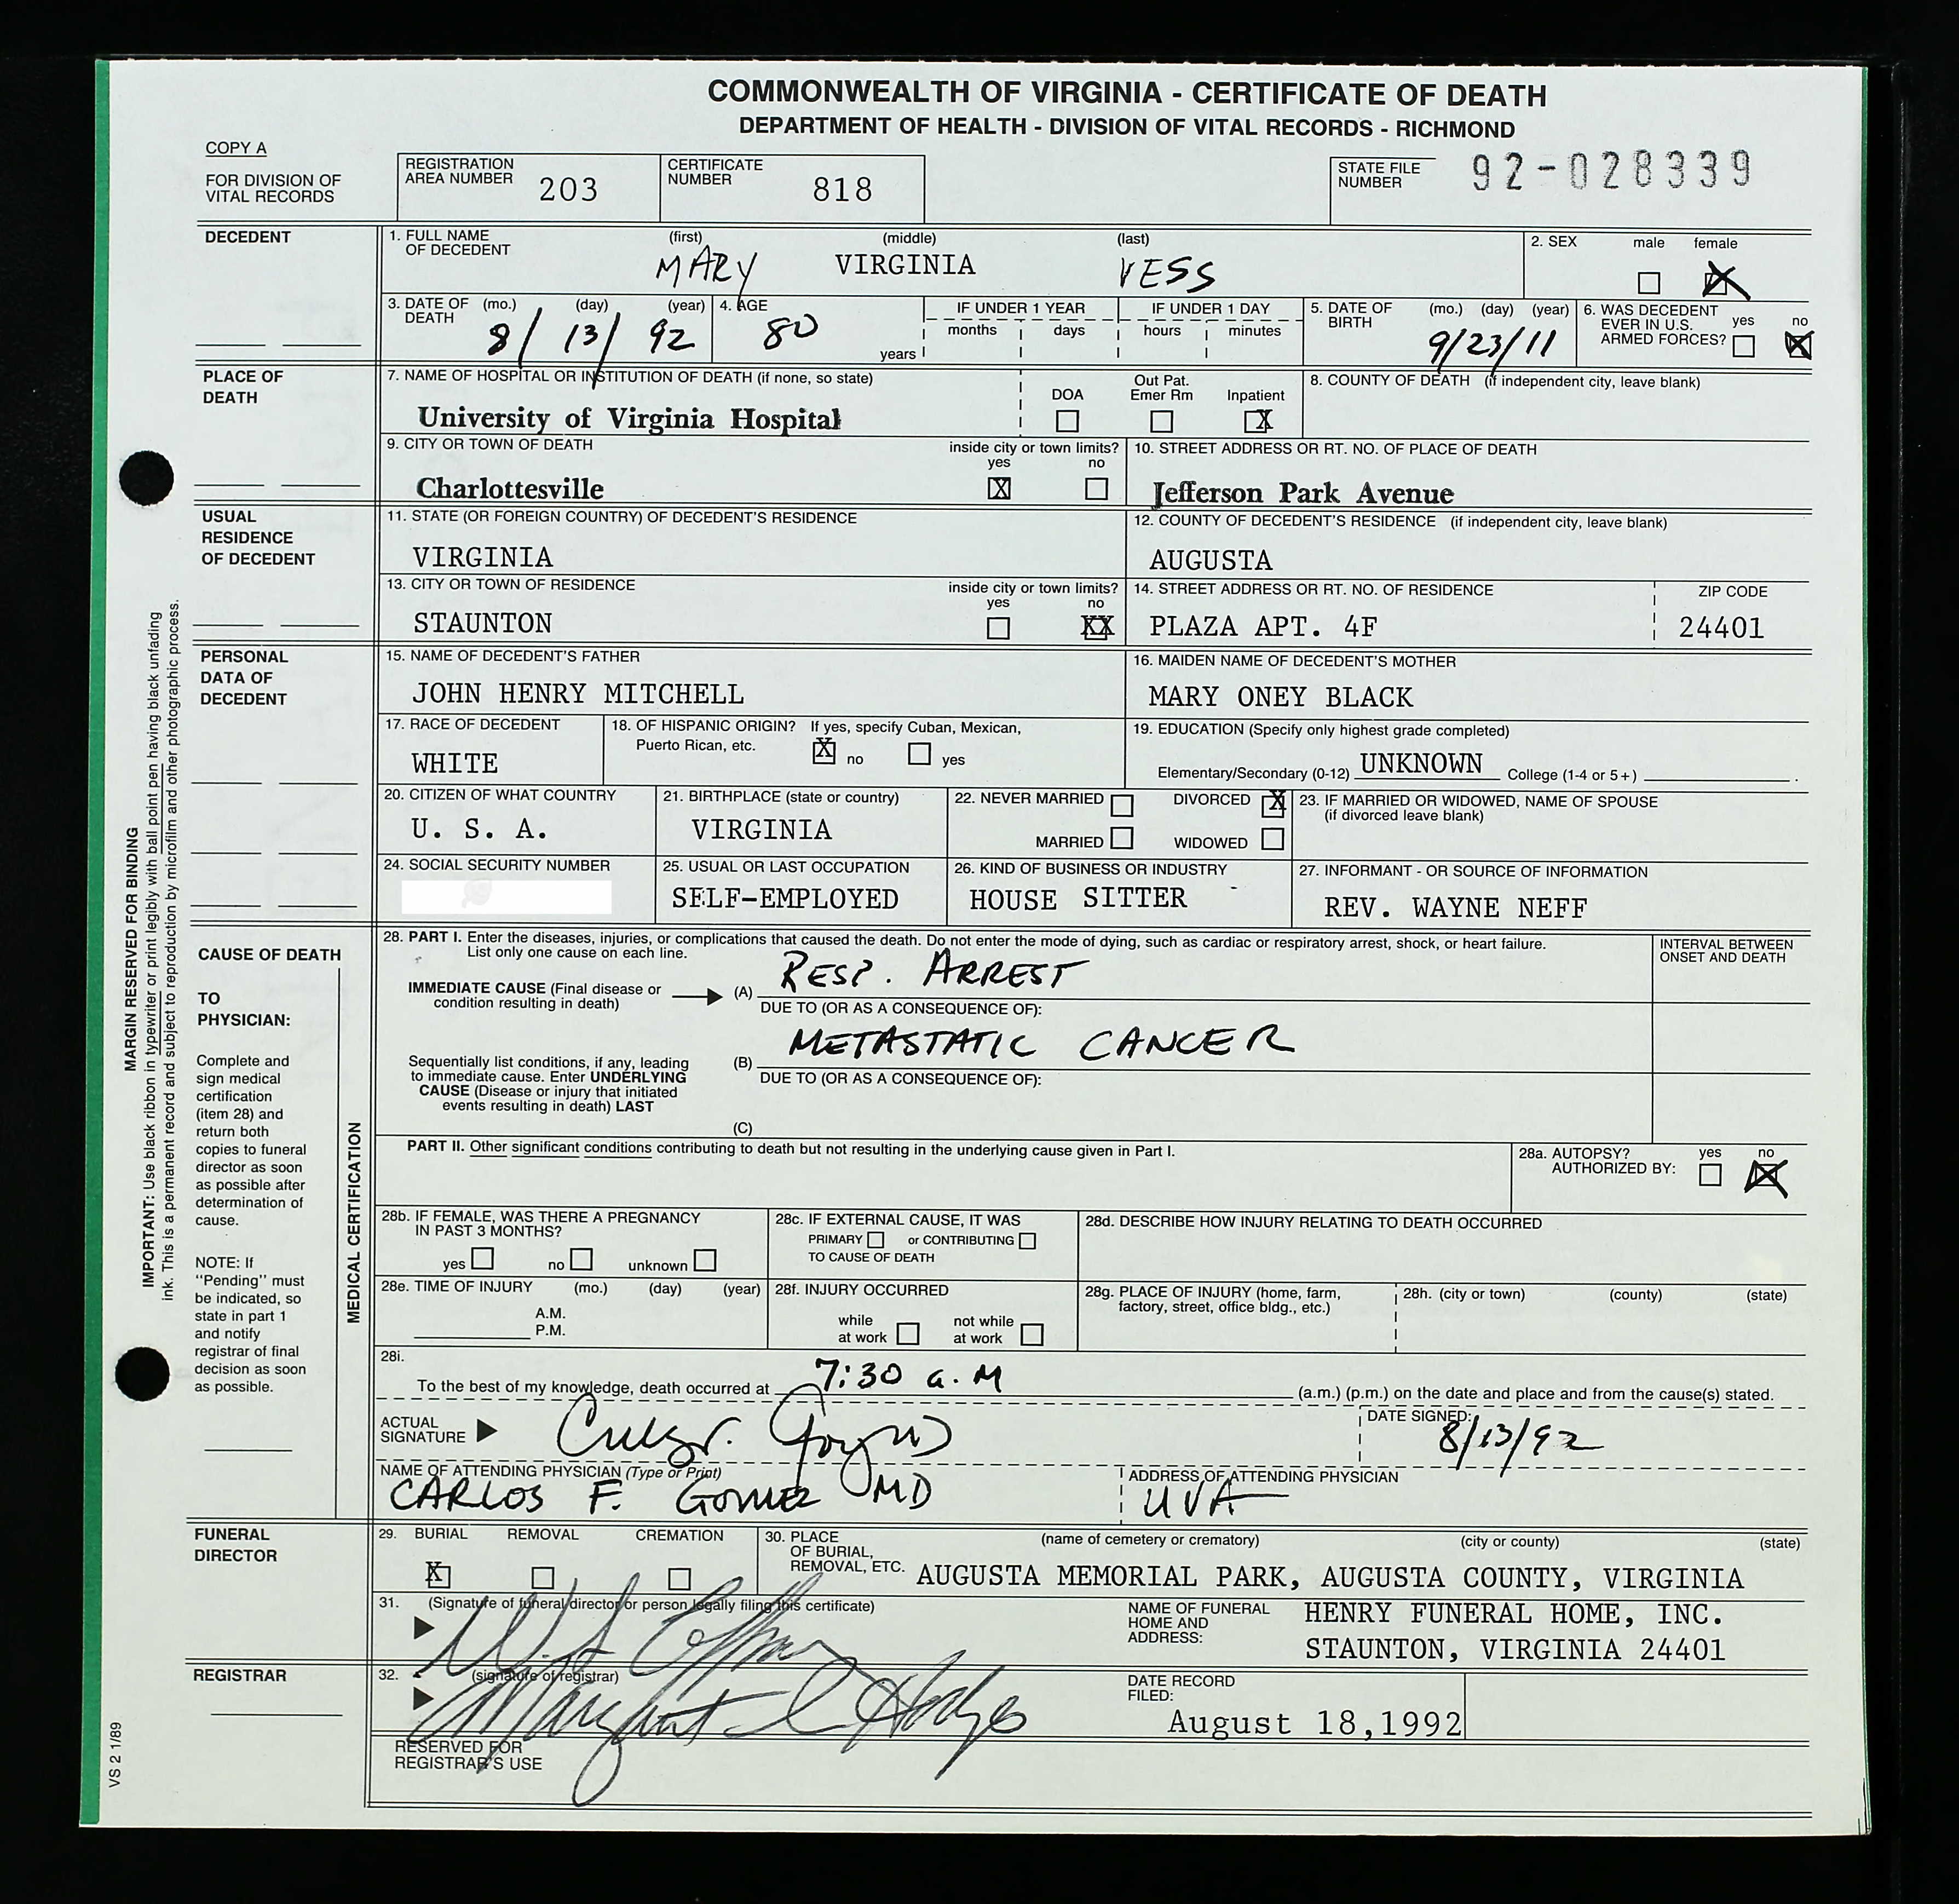 COMMONWEALTH OF VIRGINIA - CERTIFICATE OF DEATH
DEPARTMENT OF HEALTH - DIVISION OF VITAL RECORDS - RICHMOND
COPY A
FOR DIVISION OF
VITAL RECORDS
REGISTRATION
AREA NUMBER 203
CERTIFICATE
NUMBER 818
STATE FILE
NUMBER 92-028339
DECEDENT
1. FULL NAME
OF DECEDENT
(first) (middle) (last)
MARY VIRGINIA VESS
2. SEX male female
X
3. DATE OF
DEATH (mo.) (day) (year)
8/ 13/ 92
4. AGE
80
years
IF UNDER 1 YEAR
months days
IF UNDER 1 DAY
hours minutes
5. DATE OF
BIRTH (mo.) (day) (year)
9/23/11
6. WAS DECEDENT
EVER IN U.S.
ARMED FORCES? yes no
X
PLACE OF
DEATH
7. NAME OF HOSPITAL OR INSTITUTION OF DEATH (if none, so state)
University of Virginia Hospital
DOA
Out Pat.
Emer Rm
Inpatient
X
8. COUNTY OF DEATH (if independent city, leave blank)
9. CITY OR TOWN OF DEATH
Charlottesville
inside city or town limits?
yes no
X
10. STREET ADDRESS OR RT. NO. OF PLACE OF DEATH
Jefferson Park Avenue
USUAL
RESIDENCE
OF DECEDENT
11. STATE (OR FOREIGN COUNTRY) OF DECEDENT'S RESIDENCE
VIRGINIA
12. COUNTY OF DECEDENT'S RESIDENCE (if independent city, leave blank)
AUGUSTA
13. CITY OR TOWN OF RESIDENCE
STAUNTON
inside city or town limits?
yes no
XX
14. STREET ADDRESS OR RT. NO. OF RESIDENCE
PLAZA APT. 4F
ZIP CODE
24401
PERSONAL
DATA OF
DECEDENT
15. NAME OF DECEDENT'S FATHER
JOHN HENRY MITCHELL
16. MAIDEN NAME OF DECEDENT'S MOTHER
MARY ONEY BLACK
17. RACE OF DECEDENT
WHITE
18. OF HISPANIC ORIGIN? If yes, specify Cuban, Mexican,
Puerto Rican, etc. X no yes
19. EDUCATION (Specify only highest grade completed)
Elementary/Secondary (0-12) UNKNOWN College (1-4 or 5+)
20. CITIZEN OF WHAT COUNTRY
U. S. A.
21. BIRTHPLACE (state or country)
VIRGINIA
22. NEVER MARRIED DIVORCED X
MARRIED WIDOWED
23. IF MARRIED OR WIDOWED, NAME OF SPOUSE
(if divorced leave blank)
24. SOCIAL SECURITY NUMBER
25. USUAL OR LAST OCCUPATION
SELF-EMPLOYED
26. KIND OF BUSINESS OR INDUSTRY
HOUSE SITTER
27. INFORMANT - OR SOURCE OF INFORMATION
REV. WAYNE NEFF
MARGIN RESERVED FOR BINDING
IMPORTANT: Use black ribbon in typewriter or print legibly with ball point pen having black unfading
ink. This is a permanent record and subject to reproduction by microfilm and other photographic process.
CAUSE OF DEATH
TO
PHYSICIAN:
Complete and
sign medical
certification
(item 28) and
return both
copies to funeral
director as soon
as possible after
determination of
cause.
NOTE: If
"Pending" must
be indicated, so
state in part 1
and notify
registrar of final
decision as soon
as possible.
MEDICAL CERTIFICATION
28. PART I. Enter the diseases, injuries, or complications that caused the death. Do not enter the mode of dying, such as cardiac or respiratory arrest, shock, or heart failure.
List only one cause on each line.
INTERVAL BETWEEN
ONSET AND DEATH
IMMEDIATE CAUSE (Final disease or
condition resulting in death)
(A) RESP. ARREST
DUE TO (OR AS A CONSEQUENCE OF):
Sequentially list conditions, if any, leading
to immediate cause. Enter UNDERLYING
CAUSE (Disease or injury that initiated
events resulting in death) LAST
(B) METASTATIC CANCER
DUE TO (OR AS A CONSEQUENCE OF):
(C)
PART II. Other significant conditions contributing to death but not resulting in the underlying cause given in Part I.
28a. AUTOPSY? yes no
AUTHORIZED BY: X
28b. IF FEMALE, WAS THERE A PREGNANCY
IN PAST 3 MONTHS?
yes no unknown
28c. IF EXTERNAL CAUSE, IT WAS
PRIMARY or CONTRIBUTING
TO CAUSE OF DEATH
28d. DESCRIBE HOW INJURY RELATING TO DEATH OCCURRED
28e. TIME OF INJURY (mo.) (day) (year)
A.M.
P.M.
28f. INJURY OCCURRED
while
at work
not while
at work
28g. PLACE OF INJURY (home, farm,
factory, street, office bldg., etc.)
28h. (city or town) (county) (state)
28i.
To the best of my knowledge, death occurred at 7:30 a.M (a.m.) (p.m.) on the date and place and from the cause(s) stated.
ACTUAL
SIGNATURE
DATE SIGNED:
8/13/92
NAME OF ATTENDING PHYSICIAN (Type or Print)
CARLOS F. GOMEZ MD
ADDRESS OF ATTENDING PHYSICIAN
UVA
FUNERAL
DIRECTOR
29. BURIAL REMOVAL CREMATION
X
30. PLACE
OF BURIAL,
REMOVAL, ETC.
(name of cemetery or crematory) (city or county) (state)
AUGUSTA MEMORIAL PARK, AUGUSTA COUNTY, VIRGINIA
31. (Signature of funeral director or person legally filing this certificate)
NAME OF FUNERAL
HOME AND
ADDRESS:
HENRY FUNERAL HOME, INC.
STAUNTON, VIRGINIA 24401
REGISTRAR
32. (signature of registrar)
DATE RECORD
FILED:
August 18,1992
RESERVED FOR
REGISTRAR'S USE
VS 2 1/89